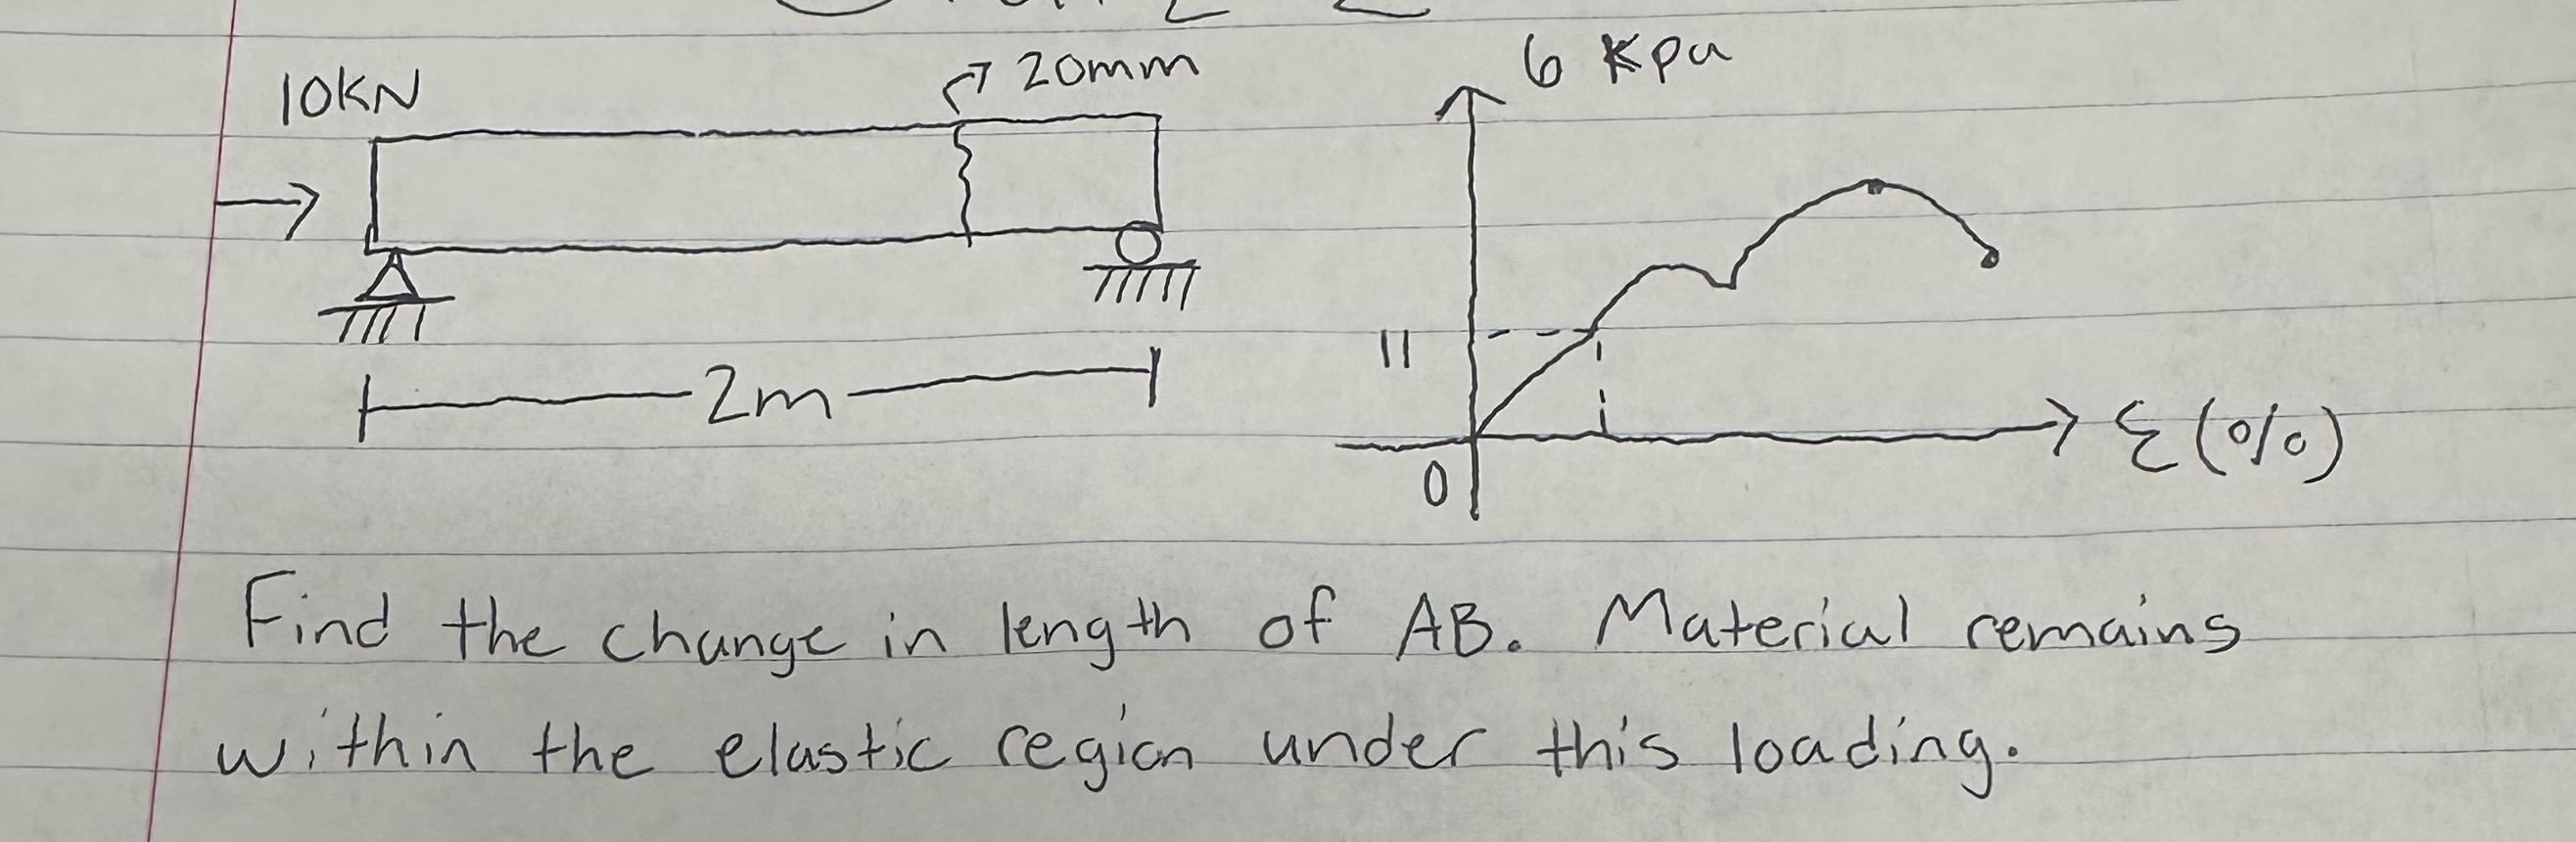 10KN
20mm
2m
6 Kpa
11
0
ε (%)
Find the change in length of AB. Material remains
within the elastic region under this loading.